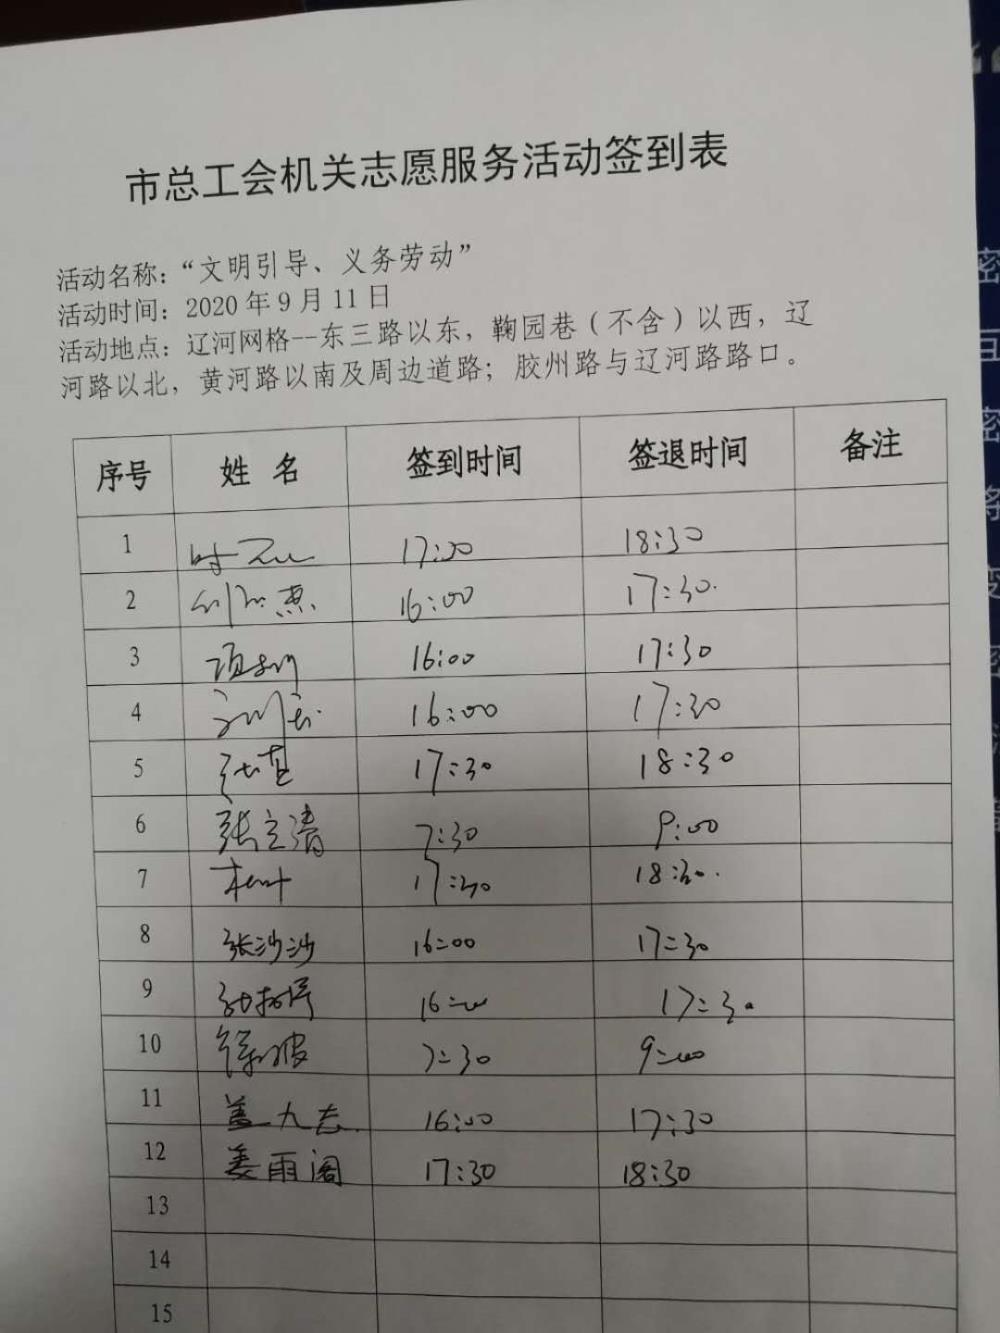 市总工会机关志愿服务活动签到表
活动名称：“文明引导、义务劳动”
活动时间：2020年9月11日
活动地点：辽河网格--东三路以东，鞠园巷（不含）以西，辽
河路以北，黄河路以南及周边道路；胶州路与辽河路路口。
序号 姓 名 签到时间 签退时间 备注
1 18:30
2 16:00 17:30
3 16:00 17:30
4 16:00 17:30
5 17:30 18:30
6 张立清 7:30 9:00
7 17:30 18:30
8 张沙沙 16:00 17:30
9 16:00 17:30
10 7:30 9:00
11 盖九志 16:00 17:30
12 姜雨阁 17:30 18:30
13
14
15
密
密